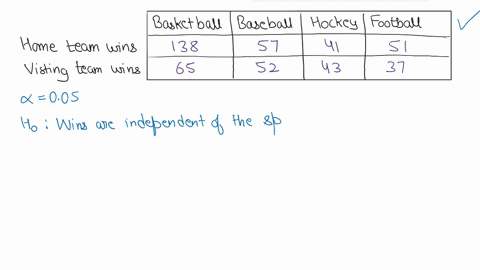 Basketball Baseball Hockey Football
Home team wins 138 57 41 51
Visting team wins 65 52 43 37
α = 0.05
H₀ : Wins are independent of the sp